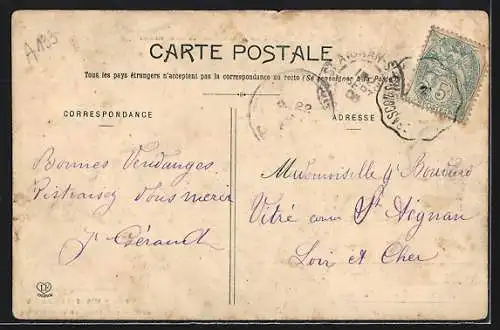 CARTE POSTALE
Tous les pays étrangers n'acceptent pas la correspondance au recto (Se renseigner à la Poste)
CORRESPONDANCE
ADRESSE
Bonnes Vendanges
J. Géraud
Mademoiselle J. Bouvard
Vitré cour St Aignan
Loir et Cher